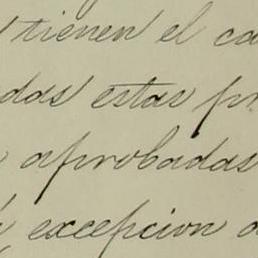 tienen el ca
das estas pr
aprobadas
excepcion d